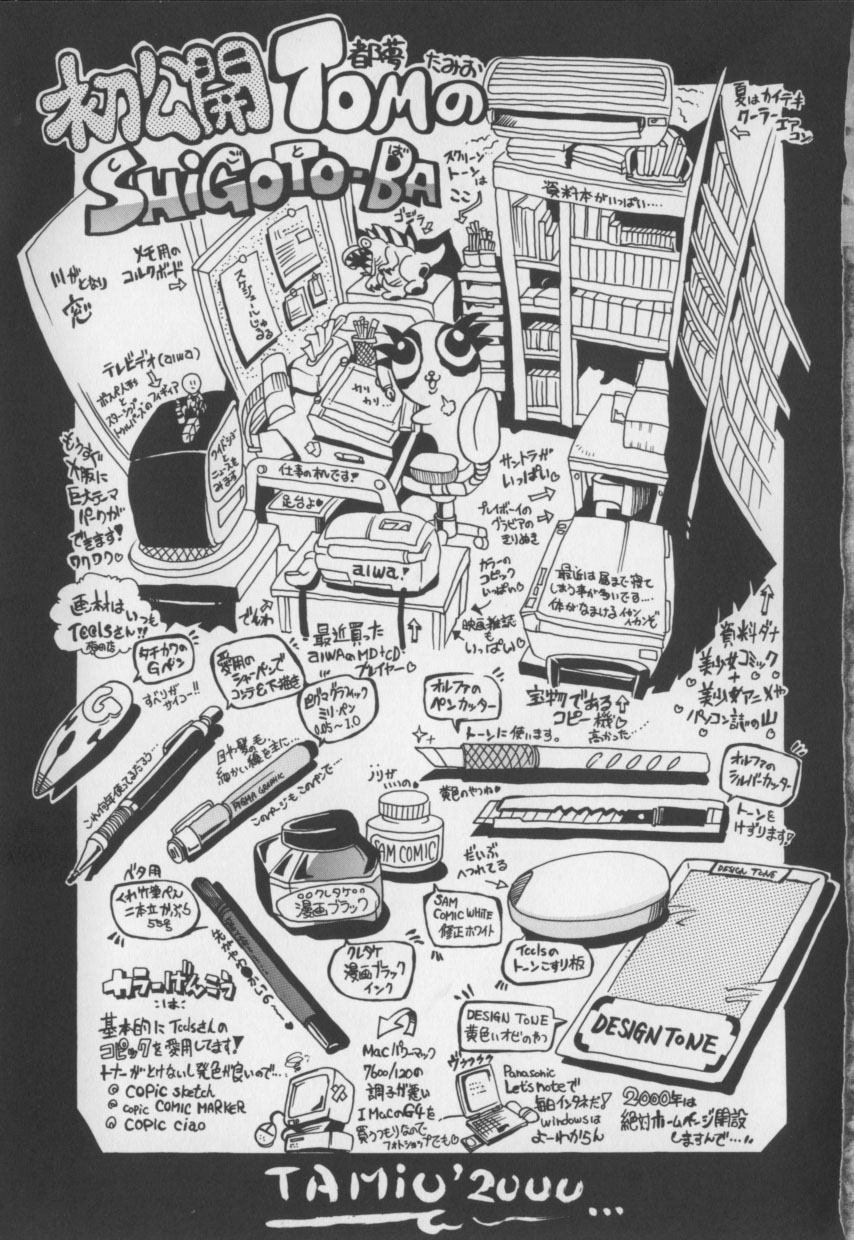 初公開 TOMの
都夢 たみお
SHiGOTO-BA
しごとば
夏はカイテキ
クーラーエアコン
スクリーン
トーンは
ココ
ゴジラ
資料本がいっぱい....
川がとなり
窓
メモ用の
コルクボード
スケジュールじゅる
テレビデオ(aiwa)
もうすぐ
大阪に
巨大テーマ
パークが
できます!
ワクワク♡
クイパンジと
ニュースを
みます
カリ
カリ...
仕事の机です!
足台よ♡
aiwa!
サントラが
いっぱい♡
プレイボーイの
グラビアの
きりぬき
カラーの
コピック
いっぱい♡
映画雑誌
も
いっぱい♡
最近は昼まで寝て
しまう事が多いです...
体がなまけるイカン
イカンぞ
資料ダナ
美少女コミック
+
美少女アニメや
パソコン誌の山
画材はいつも
Toolsさん!!
でんわ
最近買った
aiWAのMD+CD
プレイヤー♡
宝物である
コピー機♡
高かった......
タチカワの
Gペン
すべりが
サイコー!!
愛用の
シャーペンで
コンテ&下描き
これ何年使ってるだろう...
ピグマグラフィック
ミリ・ペン
0.05〜1.0
目や髪の毛
細かい線を主に...
PIGMA GRAPHIC
このページもこのペンで...
オルファの
ペンカッター
トーンに使います。
黄色のやつね♥
オルファの
シルバーカッター
トーンを
けずります!
ノリがいいの♡
SAM COMIC
SAM
COMIC WHITE
修正ホワイト
クレタケ
漫画ブラック
クレタケ
漫画ブラック
インク
ベタ用
くれ竹筆ぺん
二本立かぶら
55号
だいぶ
へってる
Toolsの
トーンこすり板
DESIGN TONE
DESIGN TONE
DESIGN TONE
黄色いオビのやつ
カラーげんこう
は
基本的にToolsさんの
コピックを愛用してます!
トナーがとけないし発色が良いので...
@ COPiC sketch
@ COPiC COMIC MARKER
@ COPiC ciao
Macパワーマック
7600/120の
調子が悪い
IMacかG4を
買うつもりなので
フォトショップでも♡
ヴゥゥゥゥ
Panasonic
Let's noteで
毎日インタネだ!
windowsは
よーわからん
2000年は
絶対ホームページ開設
しますんで...
TAMiO'2000...